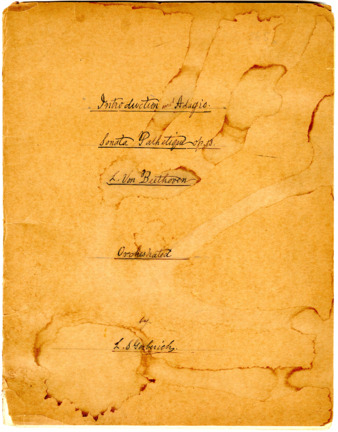 Introduction and Adagio.
Sonata Pathetique op. 13
L. Von Beethoven
Orchestrated
by